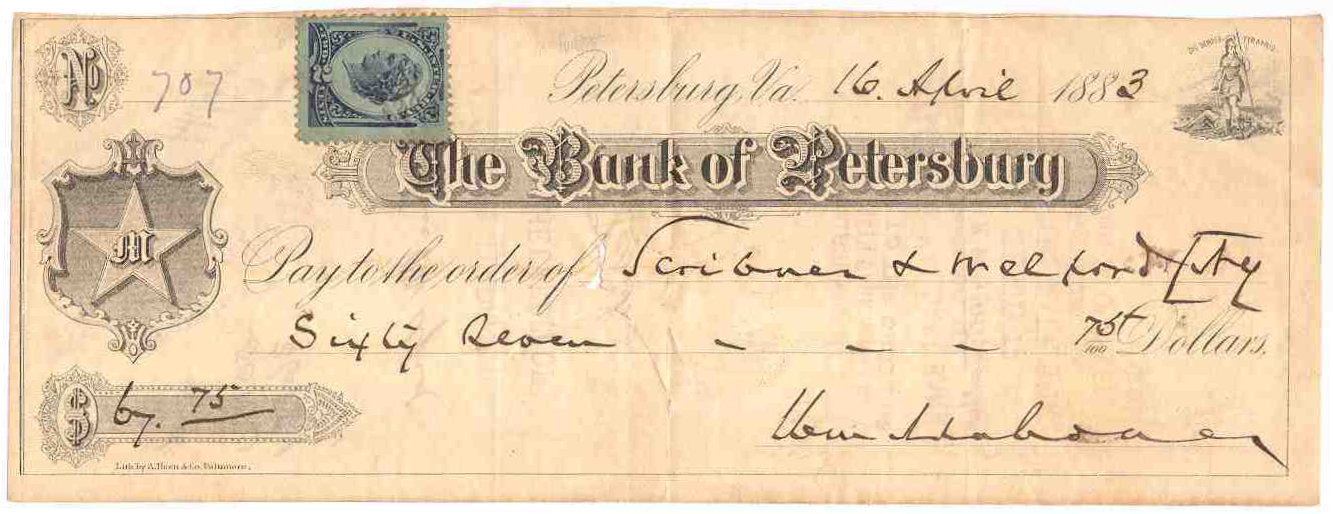 No 707
Petersburg, Va. 16. April 1883
SIC SEMPER TYRANNIS
The Bank of Petersburg
M
Pay to the order of Scribner & Welford
Sixty Seven - - - 75/100 Dollars.
$ 67. 75
Wm Mahone
Lith. by A. Hoen & Co. Baltimore.